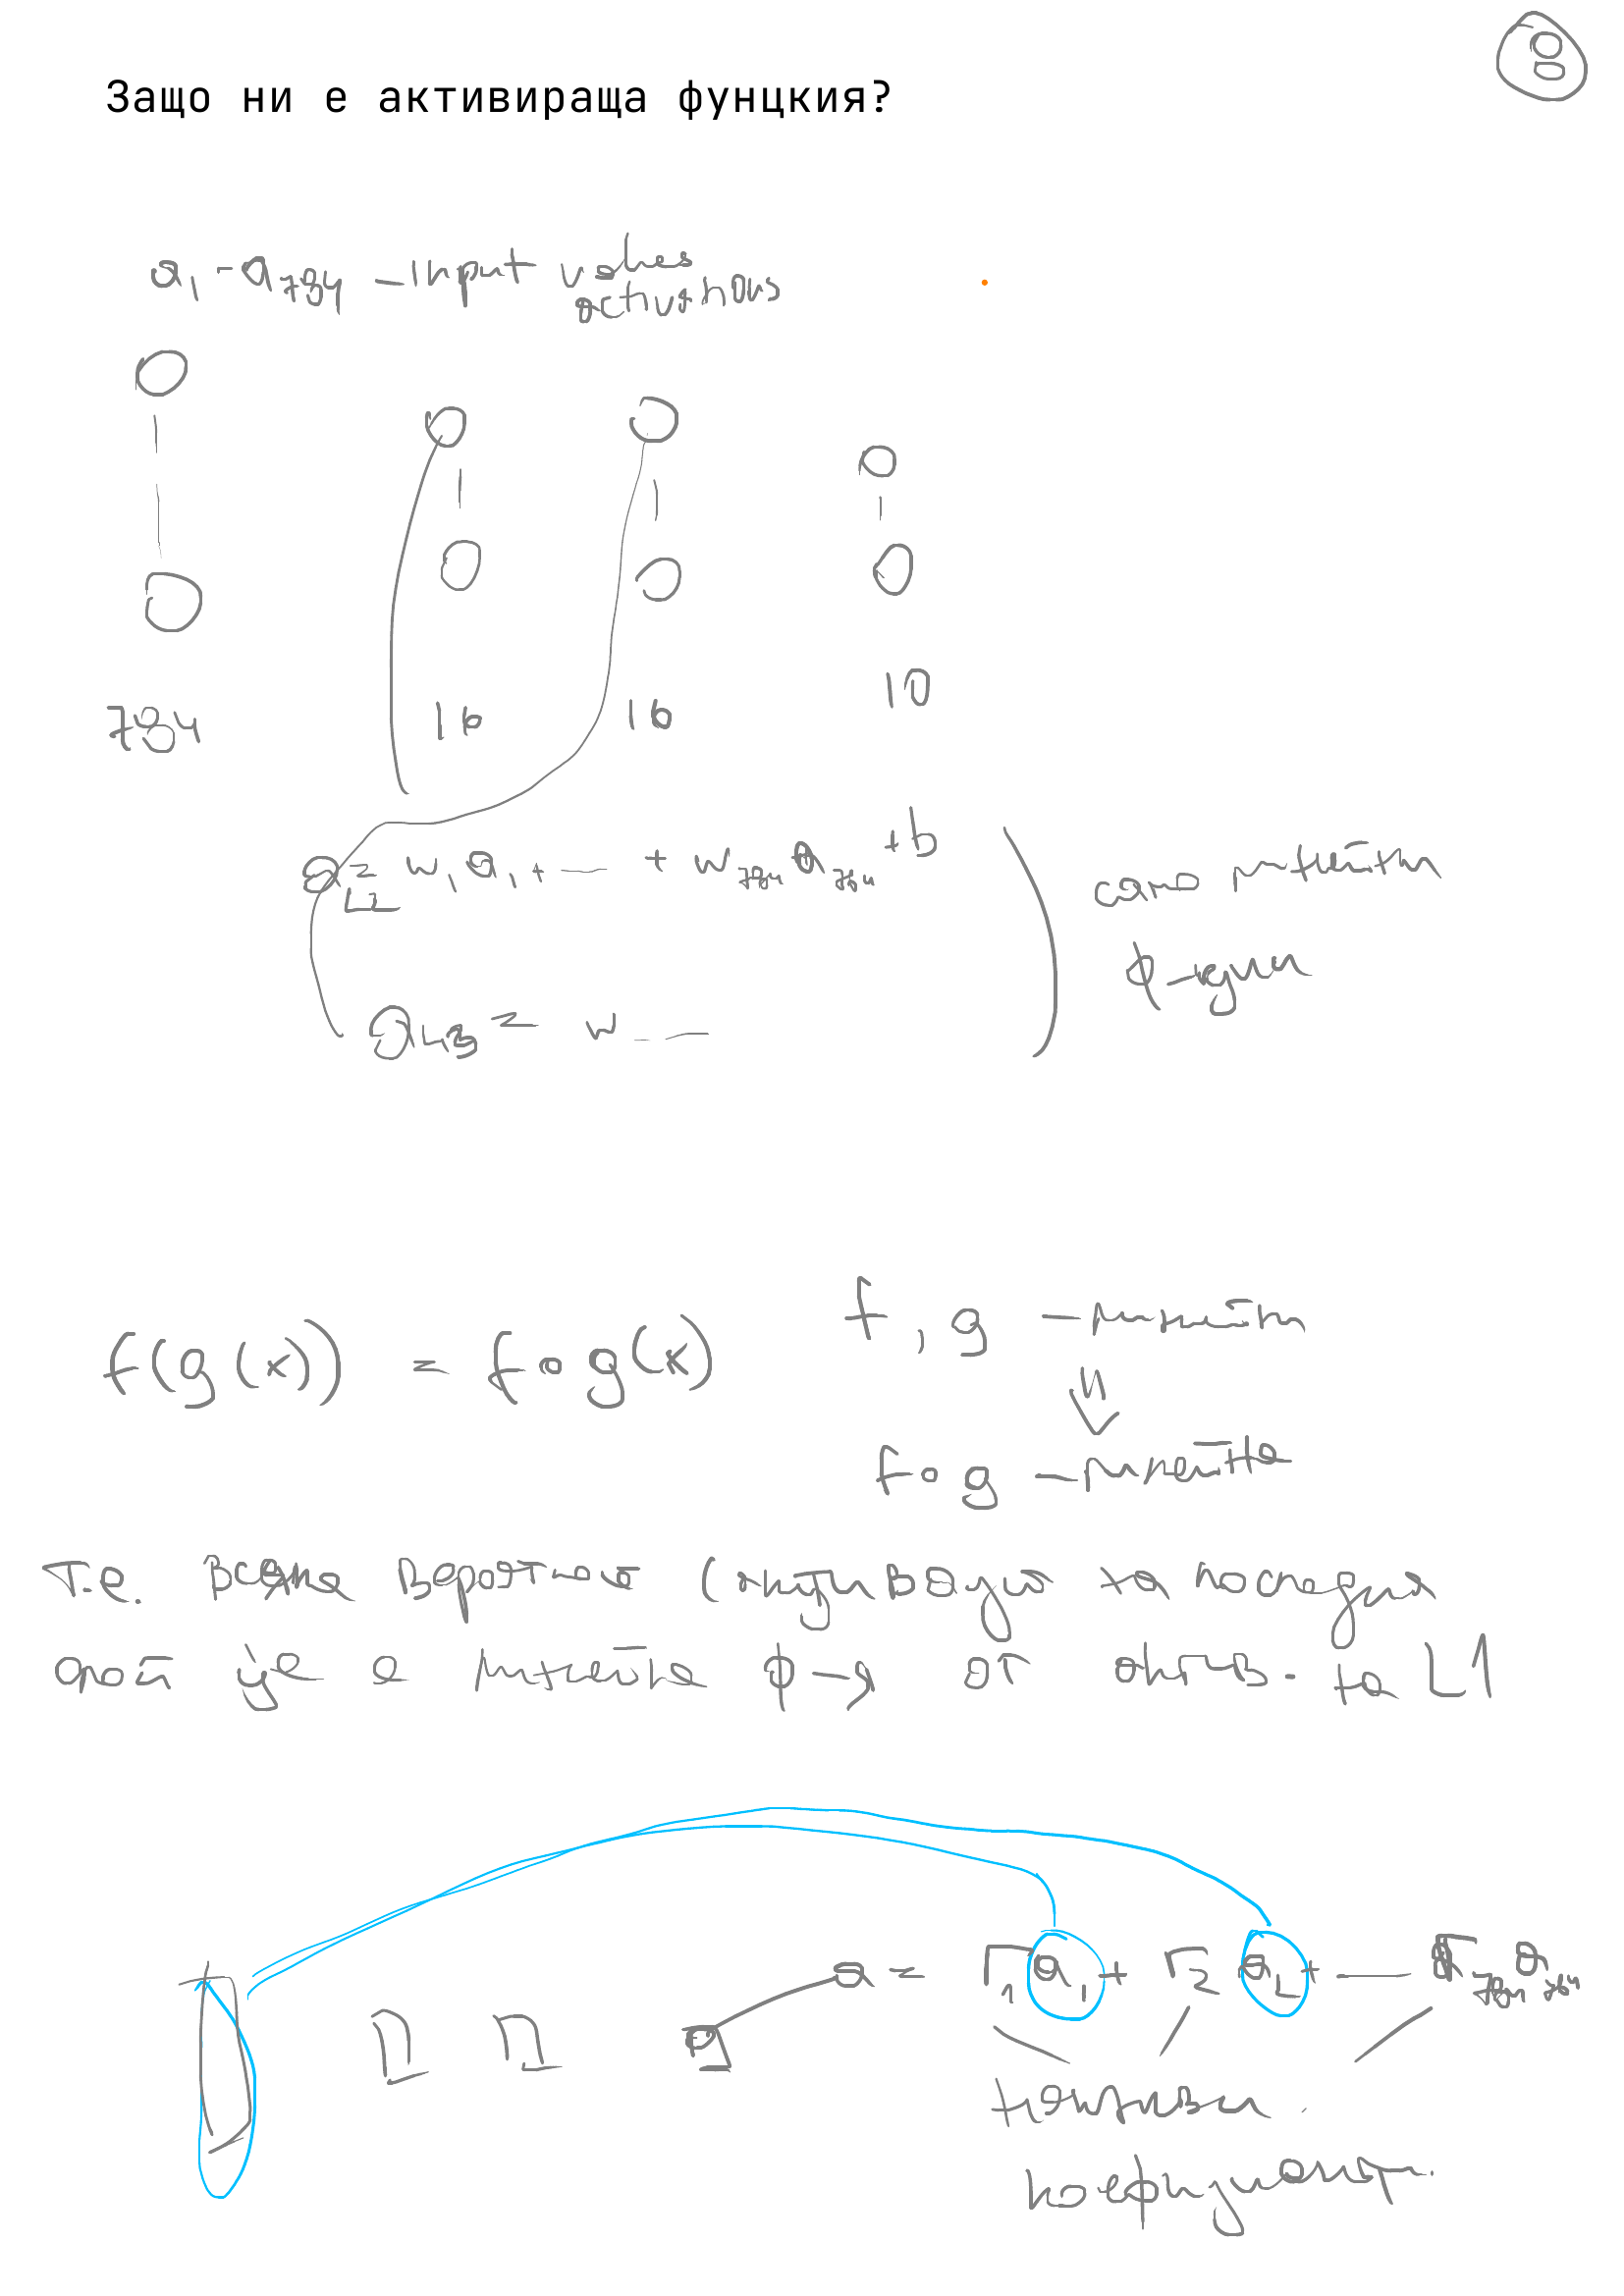 8
Защо ни е активираща фунцкия?
a₁ - a₇₈₄ - input values
activations
784
16
16
10
= w₁a₁ + — + w₇₈₄ a₇₈₄ + b
само линейни
ф-ции
= w - —
f(g(x)) = f∘g(x)
f, g - линейни
⇓
f∘g - линейна
т.е. всяка вероятност (активация на последния
слой ще е линейна ф-я от актив. на L1
a = r₁a₁ + r₂a₂ + — r₇₈₄a₇₈₄
някакви
коефициенти.